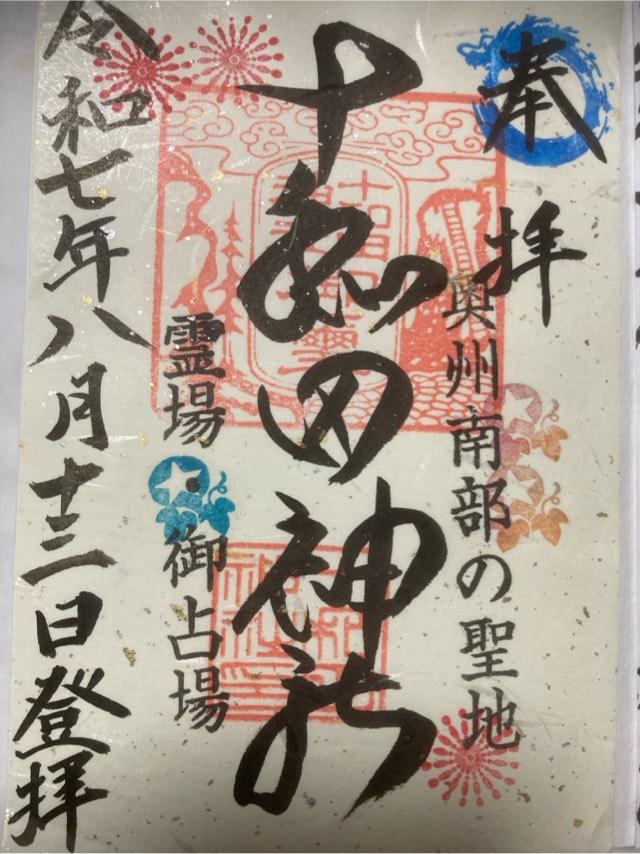 奉拝
奥州南部の聖地
十和田神社
霊場 御占場
令和七年八月十二日登拝